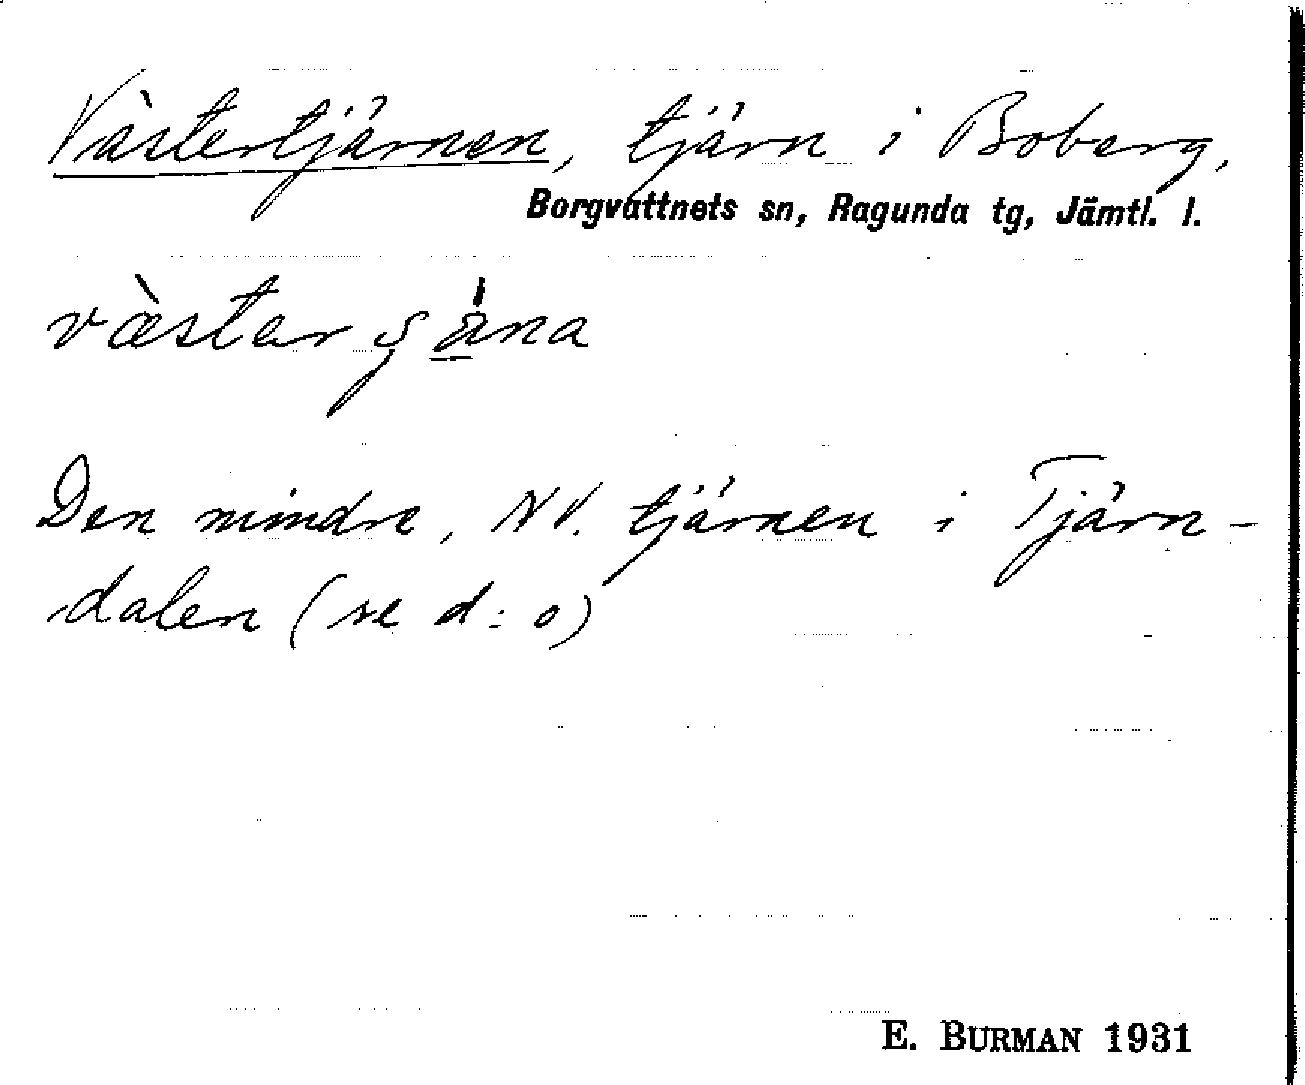 Västertjärnen, tjärn i Boberg,
Borgvattnets sn, Ragunda tg, Jämtl. l.
væ̀star
Den mindre, NV. tjärnen i Tjärn-
dalen (se d:o)
E. BURMAN 1931